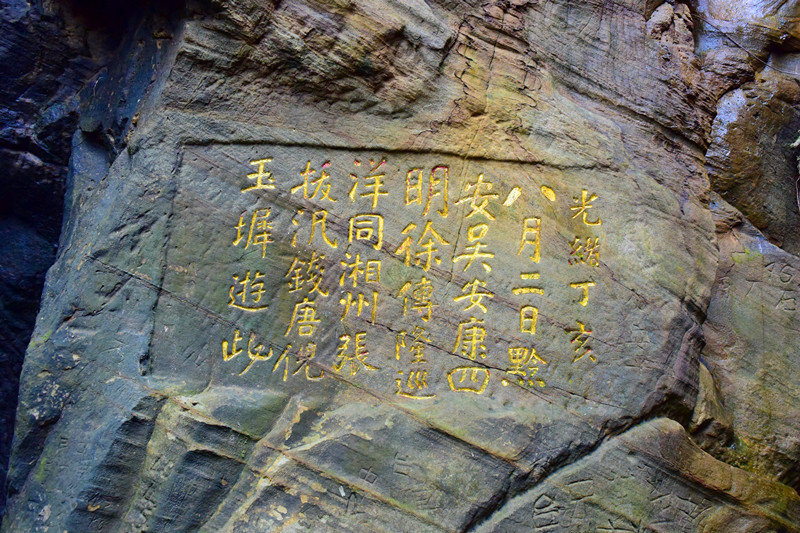 光緒丁亥
八月二日黔
安吳安康四
明徐傳隆巡
洋同湘州張
拔汎錢唐倪
玉墀遊此